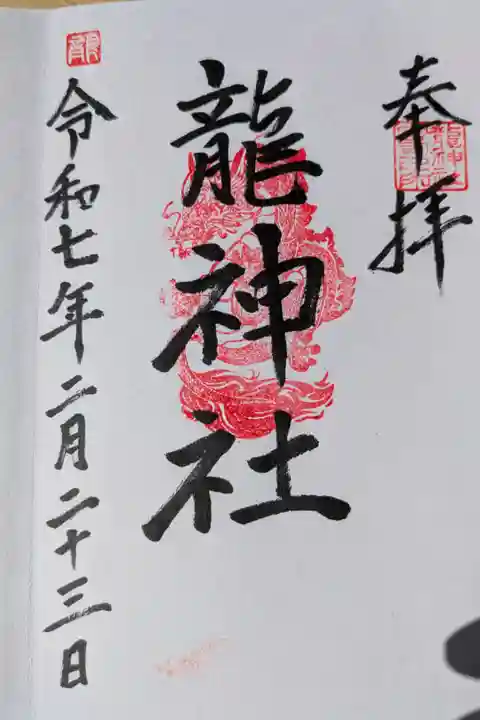 奉拝
龍神社
令和七年二月二十三日
龍